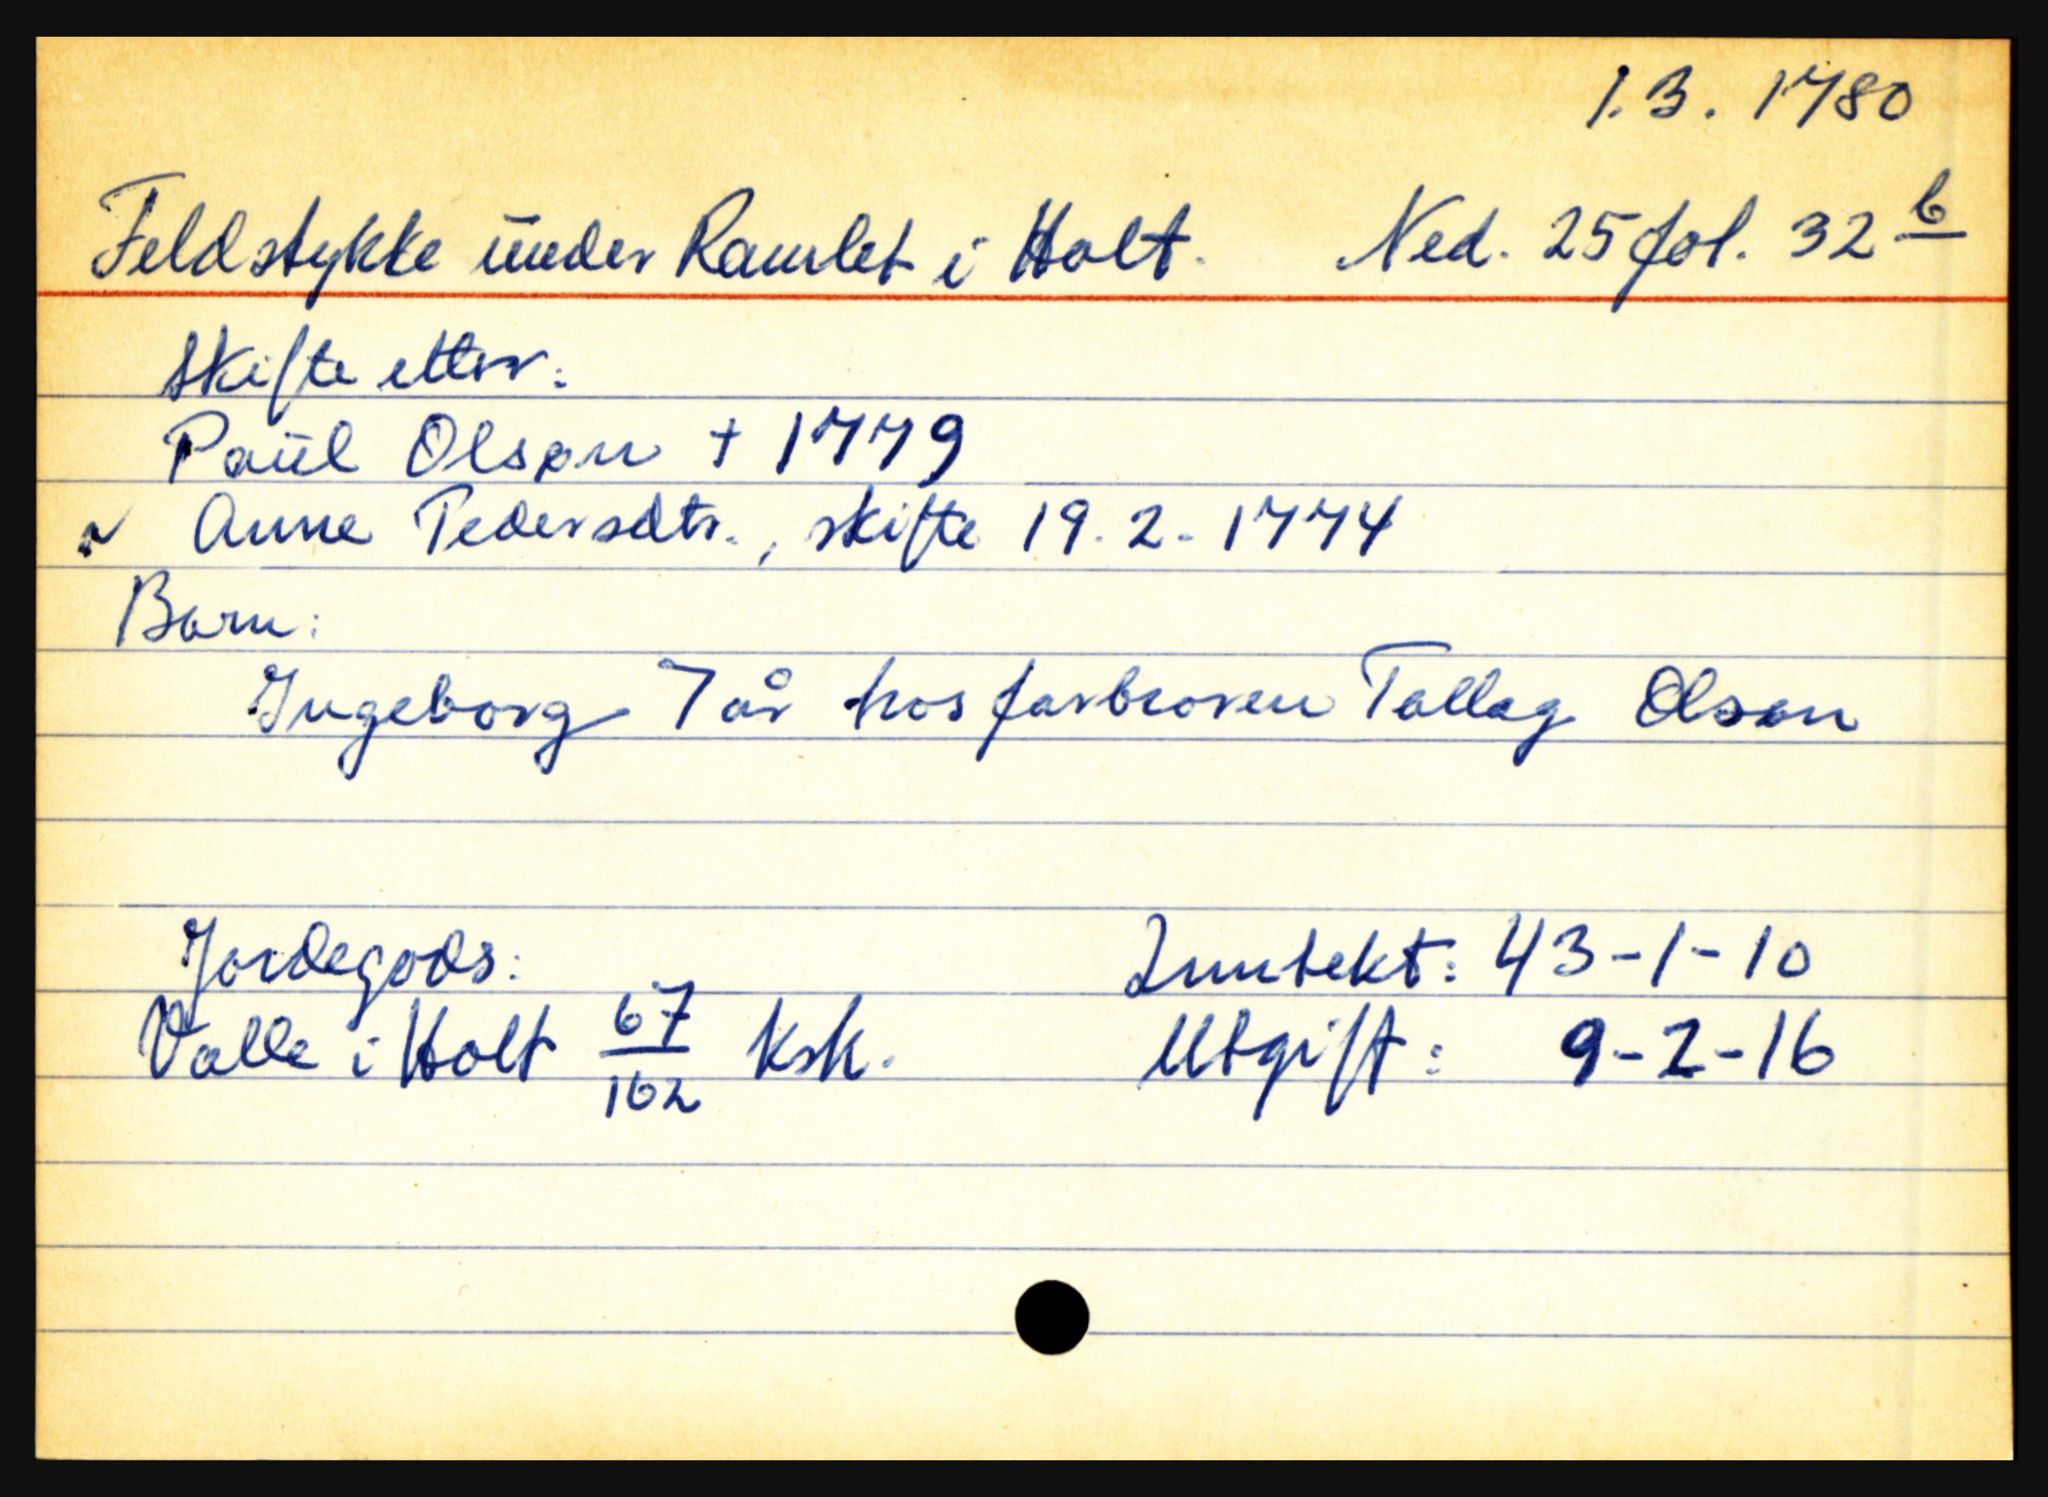 1.3. 1780
Feldstykke under Ramlet i Holt. Ned. 25 fol. 32 b
Skifte etter:
Paul Olson + 1779
~ Anne Pedersdtr., skifte 19.2.1774
Barn:
Ingeborg 7 år hos farbroren Tallag Olson
Jordegods: Inntekt: 43-1-10
Valle i Holt 67/162 ksk. Utgift: 9-2-16